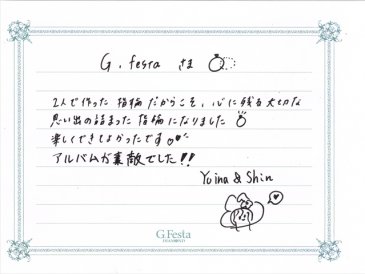 G.festa さま
2人で作った指輪だからこそ、心に残る大切な
思い出の詰まった指輪になりました
楽しくできてよかったです
アルバムが素敵でした!!
Yuina & Shin
G.Festa
DIAMOND